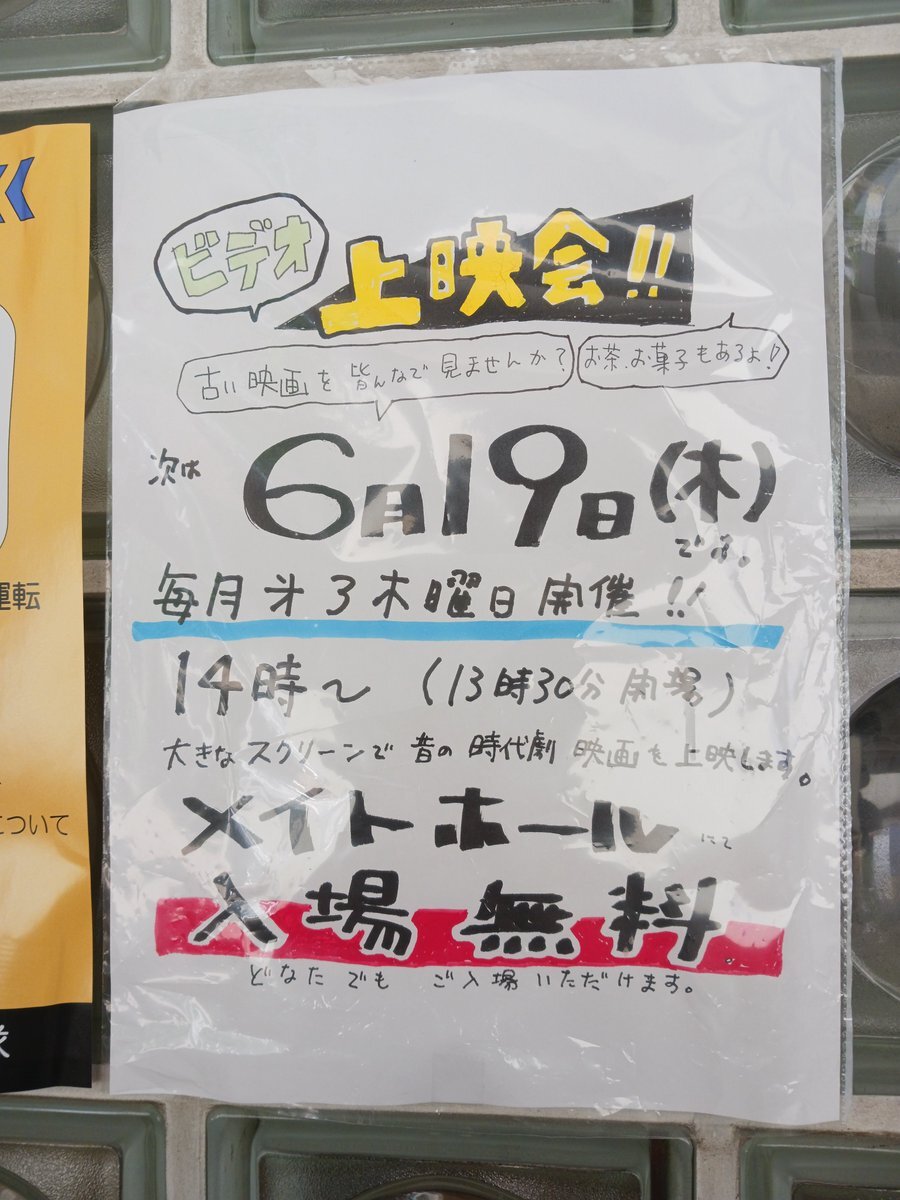 ビデオ
上映会!!
古い映画を皆んなで見ませんか?
お茶、お菓子もあるよ!
次は
6月19日(木)
です。
毎月才3木曜日開催!!
14時~ (13時30分開場)
大きなスクリーンで昔の時代劇 映画を上映します。
メイトホール にて
入場無料
どなたでも ご入場いただけます。
運転
について